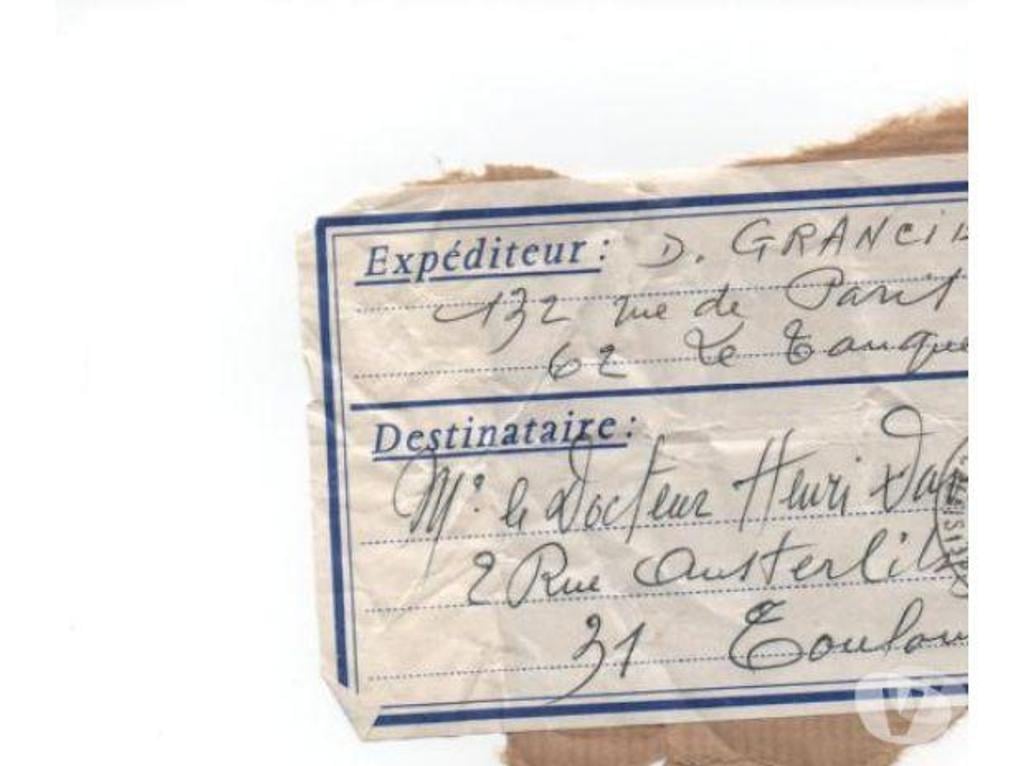 Expéditeur : D. GRANCIL
132 rue de Paris
62 Le Touque
Destinataire :
Mr le Docteur Henri
2 Rue Austerlit
31 Toulou